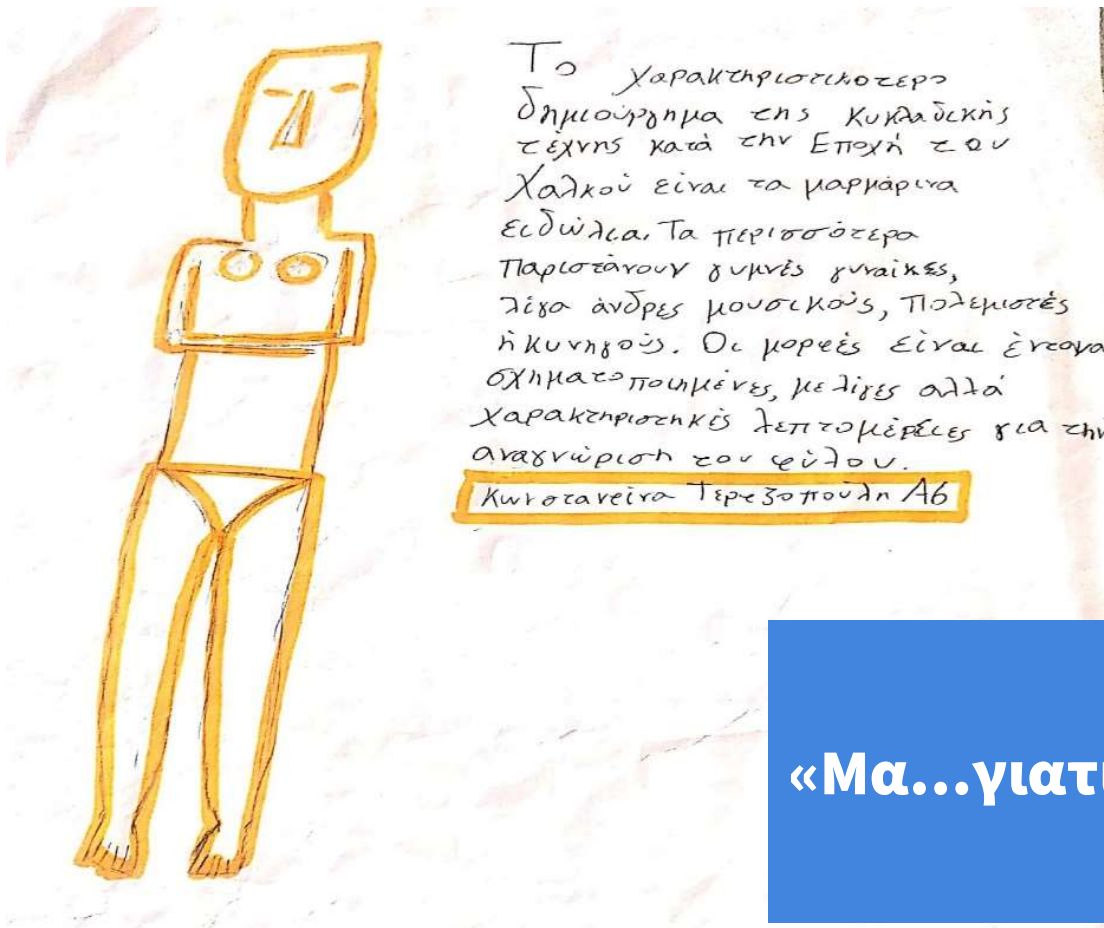 Το χαρακτηριστικοτερο
δημιούργημα της Κυκλαδικής
τέχνης κατά την Εποχή του
Χαλκού είναι τα μαρμάρινα
ειδώλια. Τα περισσότερα
Παριστάνουν γυμνές γυναίκες,
λίγα άνδρες μουσικούς, Πολεμιστές
ή κυνηγούς. Οι μορφές είναι έντονα
σχηματοποιημένες, με λίγες αλλά
χαρακτηριστηκές λεπτομέρειες για την
αναγνώριση του φύλου.
Κωνσταντίνα Τερεζοπούλη Α6
«Μα...γιατι